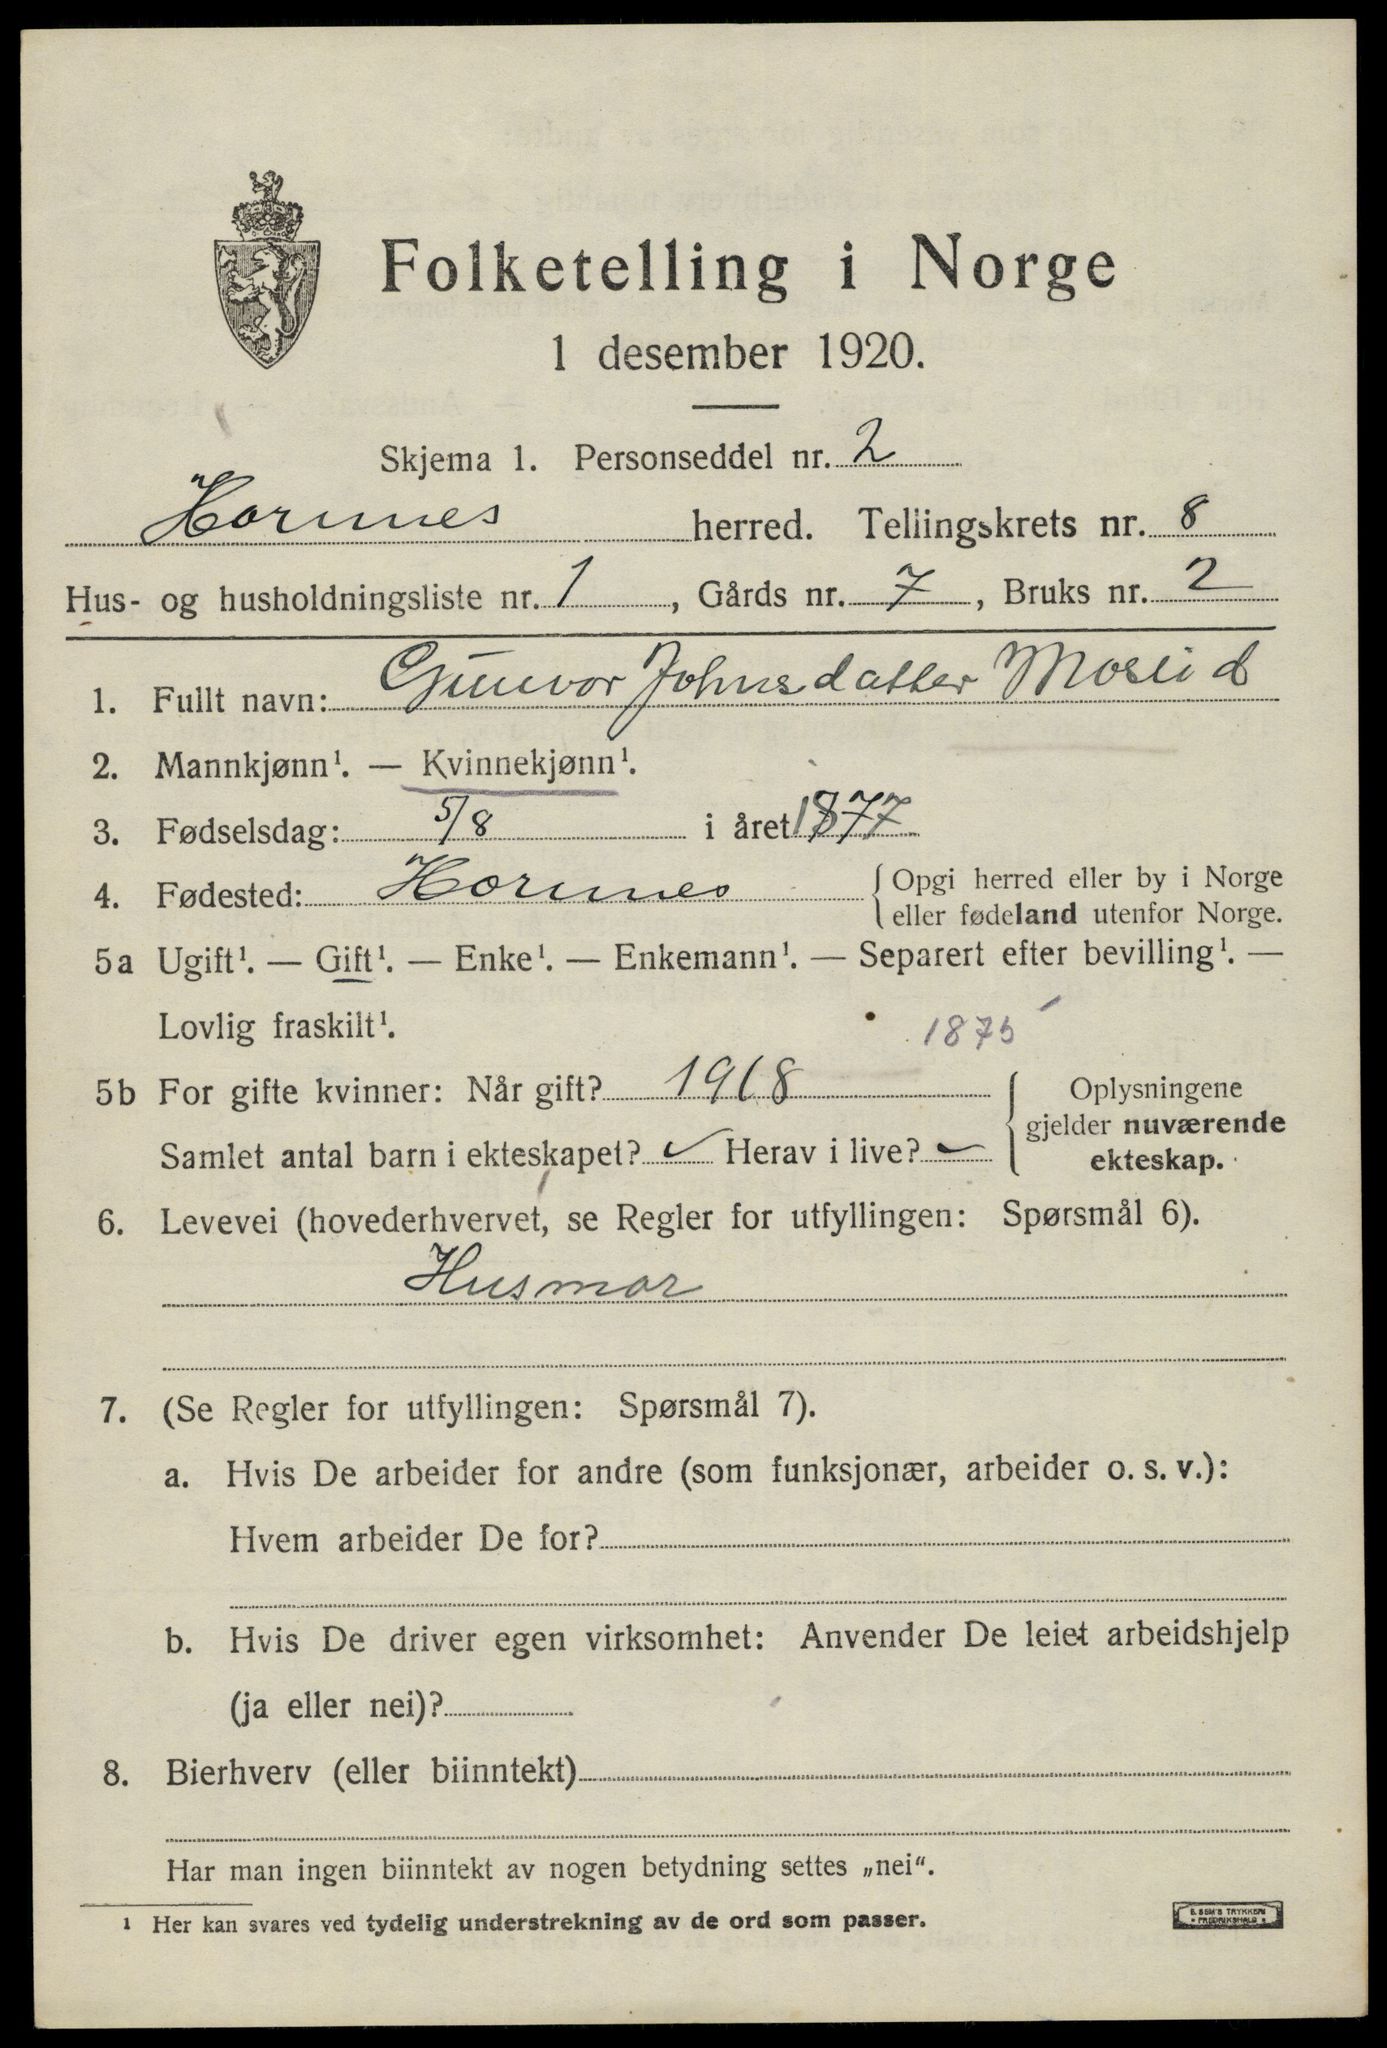 Folketelling i Norge
1 desember 1920.
Skjema 1. Personseddel nr. 2
Hornnes herred. Tellingskrets nr. 8
Hus- og husholdningsliste nr. 1, Gårds nr. 7, Bruks nr. 2
1. Fullt navn: Gunvor Johnsdatter Moseid
2. Mannkjønn¹. — Kvinnekjønn¹.
3. Fødselsdag: 5/8 i året 1877
4. Fødested: Hornnes {Opgi herred eller by i Norge
eller fødeland utenfor Norge.
5a Ugift¹. — Gift¹. — Enke¹. — Enkemann¹. — Separert efter bevilling¹. —
Lovlig fraskilt¹. 1875
5b For gifte kvinner: Når gift? 1918 { Oplysningene
gjelder nuværende
Samlet antal barn i ekteskapet? ✓ Herav i live? ✓ ekteskap.
6. Levevei (hovederhvervet, se Regler for utfyllingen: Spørsmål 6).
Husmor
7. (Se Regler for utfyllingen: Spørsmål 7).
a. Hvis De arbeider for andre (som funksjonær, arbeider o. s. v.):
Hvem arbeider De for?
b. Hvis De driver egen virksomhet: Anvender De leiet arbeidshjelp
(ja eller nei)?
8. Bierhverv (eller biinntekt)
Har man ingen biinntekt av nogen betydning settes „nei“.
¹ Her kan svares ved tydelig understrekning av de ord som passer.
E. SEM'S TRYKKERI
* FREDRIKSHALD *